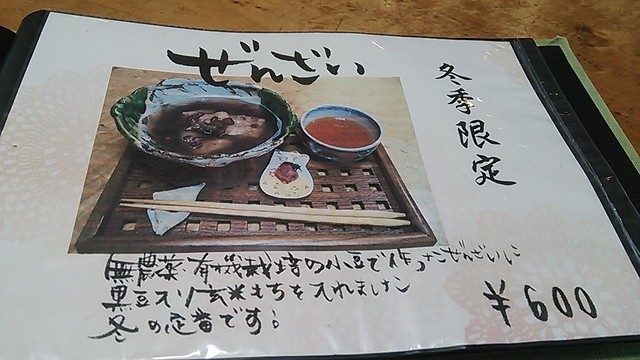 ぜんざい
冬季限定
無農薬有機栽培の小豆で作ったぜんざいに
黒豆入り玄米もちを入れました
冬の定番です。
¥600